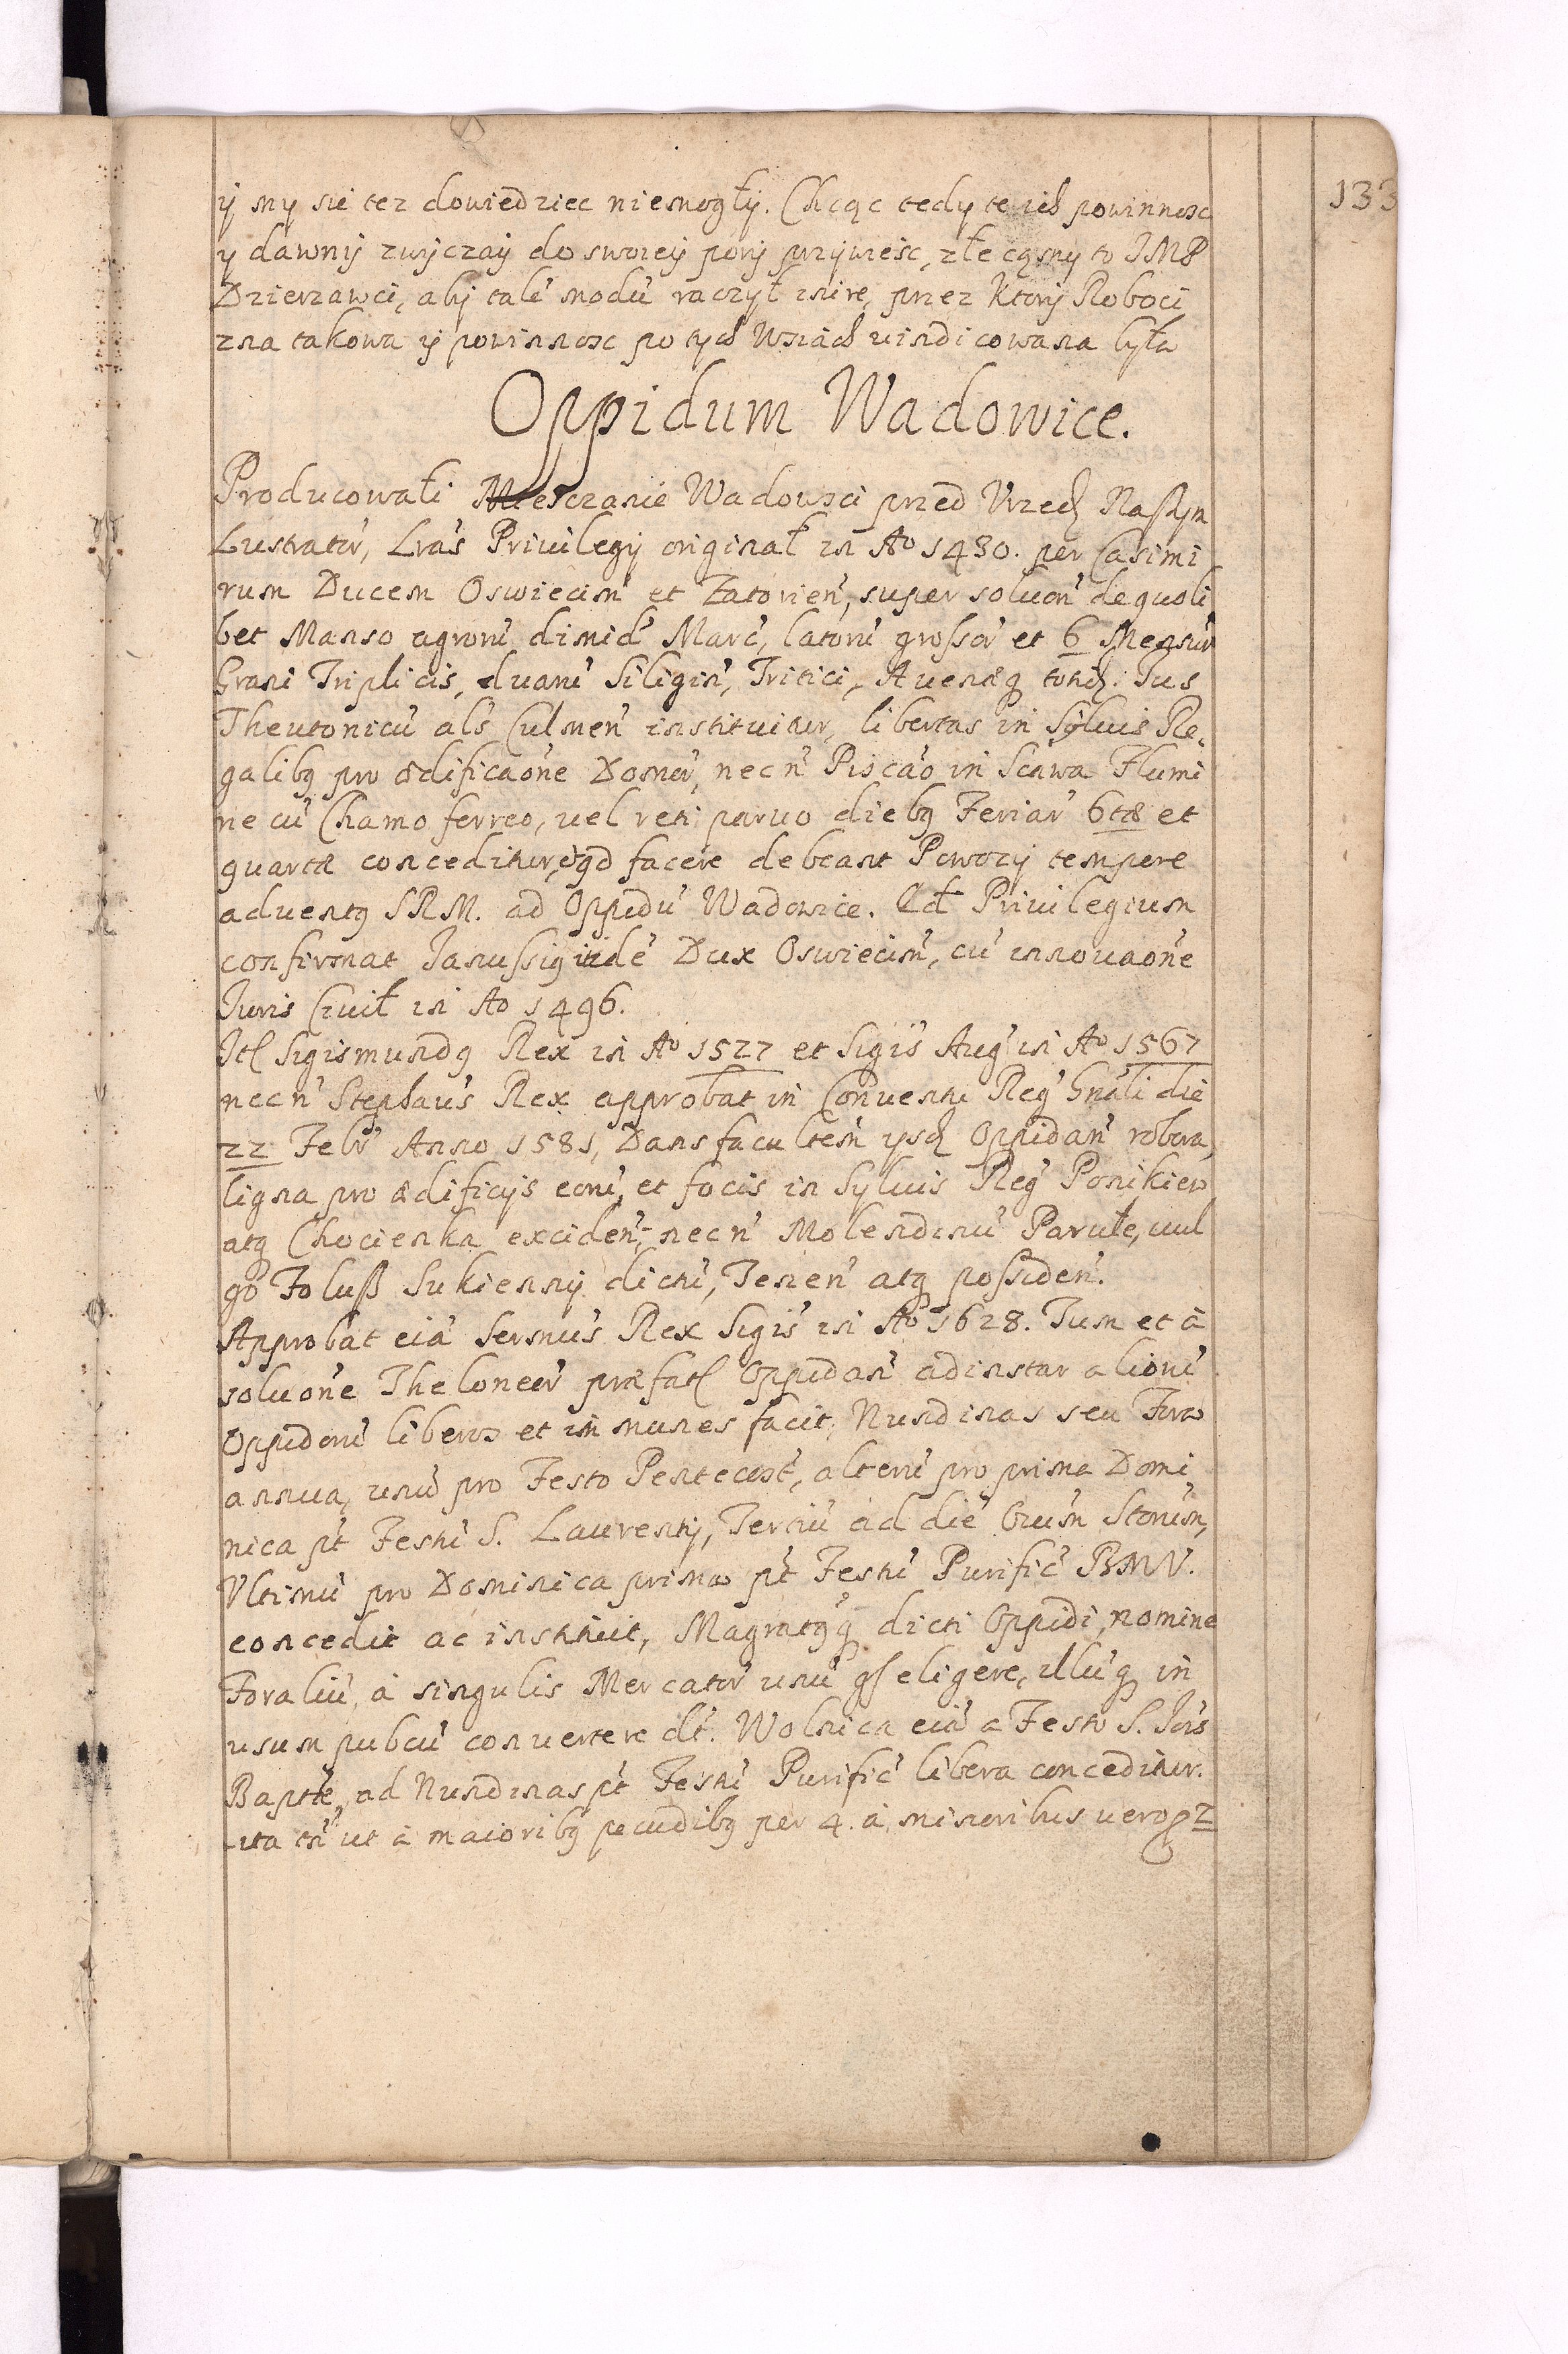 133
ÿ my sie tez dowiedziec niemogłÿ. Chcąc tedy te ich powinnosc
y dawnÿ zwÿczaÿ do swoieÿ porÿ przÿwiesc, zlecąmy to JMP
Dzierzawci, abÿ talē modū raczył inire, przez Ktorÿ Roboci
zna takowa ÿ powinnosc po tych Wsiach vindicowana była
Oppidum Wadowice.
Producowali Miesczanie Wadowsci przed Vrzęd Naszym
Lustrator', Lras Priuilegij original in Ao 1430. per Casimi
rum Ducem Oswiecim' et Zatorien', super soluon' de quoli
bet Manso agrorū dimid' Marc', latorū grossor' et 6 Mensur'
Grani Triplicis, duarū Siligin', Tritici, Auenæq totid: Jus
Theutonicū als Culmen' instituitur, libertas in Syluis Re,
galibq pro ædificaone Domor', necn' Piscao in Scawa Flumi
ne cū Chamo ferreo, uel reti paruo diebq Feriar' 6tæ et
quartæ conceditur, qd facere debeant Powozÿ tempore
aduentq SRM. ad Oppidū Wadowice. Id Priuilegium
confirmat Janussiq itide Dux Oswiecim', cū innouaone
Juris Ciuil in Ao 1496.
Jt Sigismundq Rex in Ao 1527 et Sigis' Aug' in Ao 1567
necn' Stephan's Rex approbat in Conuentu Reg' Gnali die
22 Febr' Anno 1581, Dans facultem ysd Oppidan' robora,
ligna pro ædificijs eorū, et focis in Syluis Reg' Ponikiew
atq Chocienka exciden', necn' Molendinū Parule, uul
go Folusz Sukiennÿ dictū, Tenen' atq possiden'.
Approbat eiā Sermus Rex Sigis' in Ao 1628. Tum et à
soluone Theloneor' præfat Oppidan' ad instar aliorū
Oppidorū liberos et immunes facit, Nundinas seu Fora
annua, unū pro Festo Pentecost', alterū pro prima Domi
nica pt Festū S. Laurentij, Tertiū ad diē Oium Storum,
Vltimū pro Dominica prima pt Festū Purific' BMV.
concedit ac instituit, Magratqq dicti Oppidi, nomine
Foraliū, à singulis Mercator' unū gr eligere, illūq in
usum pubcū conuertere dt. Wolnica eiā a Festo S. Jois
Baptæ, ad Nundinas pt Festū Purific' libera conceditur.
ita tn ut à maioribq pecudibq per 4. à minoribus uero p 2